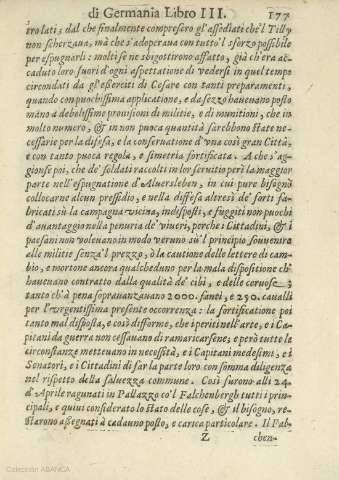 di Germania Libro III. 177
tro lati; dal che finalmente compresero gl'assediati che'l Tilly
non scherzaua, ma che s'adoperaua con tutto'l sforzo possibile
per espugnarli: molti se ne sbigottirono affatto, già ch'era ac-
caduto loro fuori d'ogni aspettatione di vedersi in quel tempo
circondati da gl'esserciti di Cesare con tanti preparamenti,
quando con puochissima applicatione, e da sezzo haueuano posto
mano a debolissime prouisioni di militie, e di munitioni, che in
molto numero, & in non puoca quantità sarebbono state ne-
cessarie per la difesa, e la conseruatione d'vna così gran Città,
e con tanto puoca regola, e simetria fortificata. A che s'ag-
gionse poi, che de' soldati raccolti in lor seruitio però la maggior
parte nell'espugnatione d'Aluersleben, in cui pure bisognò
collocarne alcun pressidio, e nella diffesa altresì de' forti fa-
bricati sù la campagna vicina, indisposti, e fuggiti non puochi
d'auantaggio nella penuria de' viueri, perche i Cittadini, & i
paesani non voleuano in modo veruno sù'l principio souuenire
alle militie senza'l prezzo, ò la cautione delle lettere di cam-
bio, e mortone ancora qualcheduno per la mala dispositione ch'
haueuano contratto dalla qualità de' cibi, e delle ceruose;
tanto ch'à pena soprauanzauano 2000. fanti, e 250. caualli
per l'vrgentissima presente occorrenza: la fortificatione poi
tanto mal disposta, e così difforme, che i periti nell'arte, e i Ca-
pitani da guerra non cessauano di ramaricarsene; e però tutte le
circonstanze metteuano in necessità, e i Capitani medesimi, e i
Senatori, e i Cittadini di far la parte loro con somma diligenza
nel rispetto della saluezza commune. Così furono alli 24.
d'Aprile ragunati in Pallazzo co'l Falchenbergh tutti i prin-
cipali, e quiui considerato lo stato delle cose, & il bisogno, re-
starono assegnati à cadauno posto, e carica particolare. Il Fal-
Z chen-
Colección ABANCA